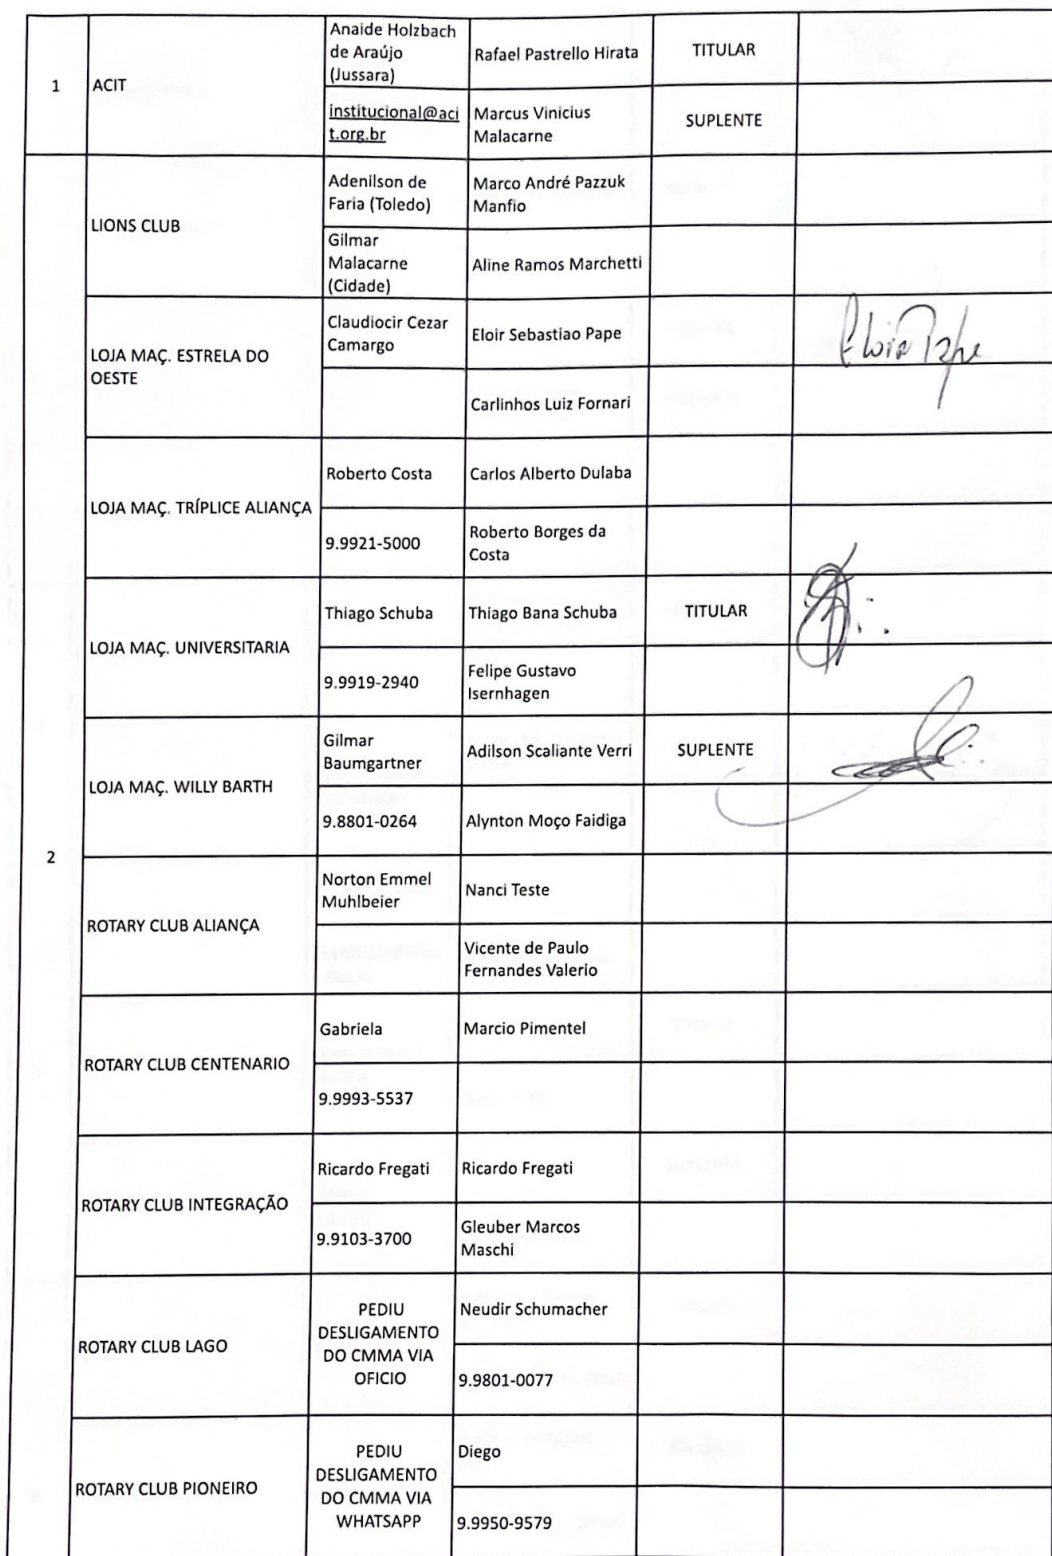 1
ACIT
Anaide Holzbach
de Araújo
(Jussara)
Rafael Pastrello Hirata
TITULAR
institucional@aci
t.org.br
Marcus Vinicius
Malacarne
SUPLENTE
2
LIONS CLUB
Adenilson de
Faria (Toledo)
Marco André Pazzuk
Manfio
Gilmar
Malacarne
(Cidade)
Aline Ramos Marchetti
LOJA MAÇ. ESTRELA DO
OESTE
Claudiocir Cezar
Camargo
Eloir Sebastiao Pape
Eloir Pape
Carlinhos Luiz Fornari
LOJA MAÇ. TRÍPLICE ALIANÇA
Roberto Costa
Carlos Alberto Dulaba
9.9921-5000
Roberto Borges da
Costa
LOJA MAÇ. UNIVERSITARIA
Thiago Schuba
Thiago Bana Schuba
TITULAR
9.9919-2940
Felipe Gustavo
Isernhagen
LOJA MAÇ. WILLY BARTH
Gilmar
Baumgartner
Adilson Scaliante Verri
SUPLENTE
9.8801-0264
Alynton Moço Faidiga
ROTARY CLUB ALIANÇA
Norton Emmel
Muhlbeier
Nanci Teste
Vicente de Paulo
Fernandes Valerio
ROTARY CLUB CENTENARIO
Gabriela
Marcio Pimentel
9.9993-5537
ROTARY CLUB INTEGRAÇÃO
Ricardo Fregati
Ricardo Fregati
9.9103-3700
Gleuber Marcos
Maschi
ROTARY CLUB LAGO
PEDIU
DESLIGAMENTO
DO CMMA VIA
OFICIO
Neudir Schumacher
9.9801-0077
ROTARY CLUB PIONEIRO
PEDIU
DESLIGAMENTO
DO CMMA VIA
WHATSAPP
Diego
9.9950-9579